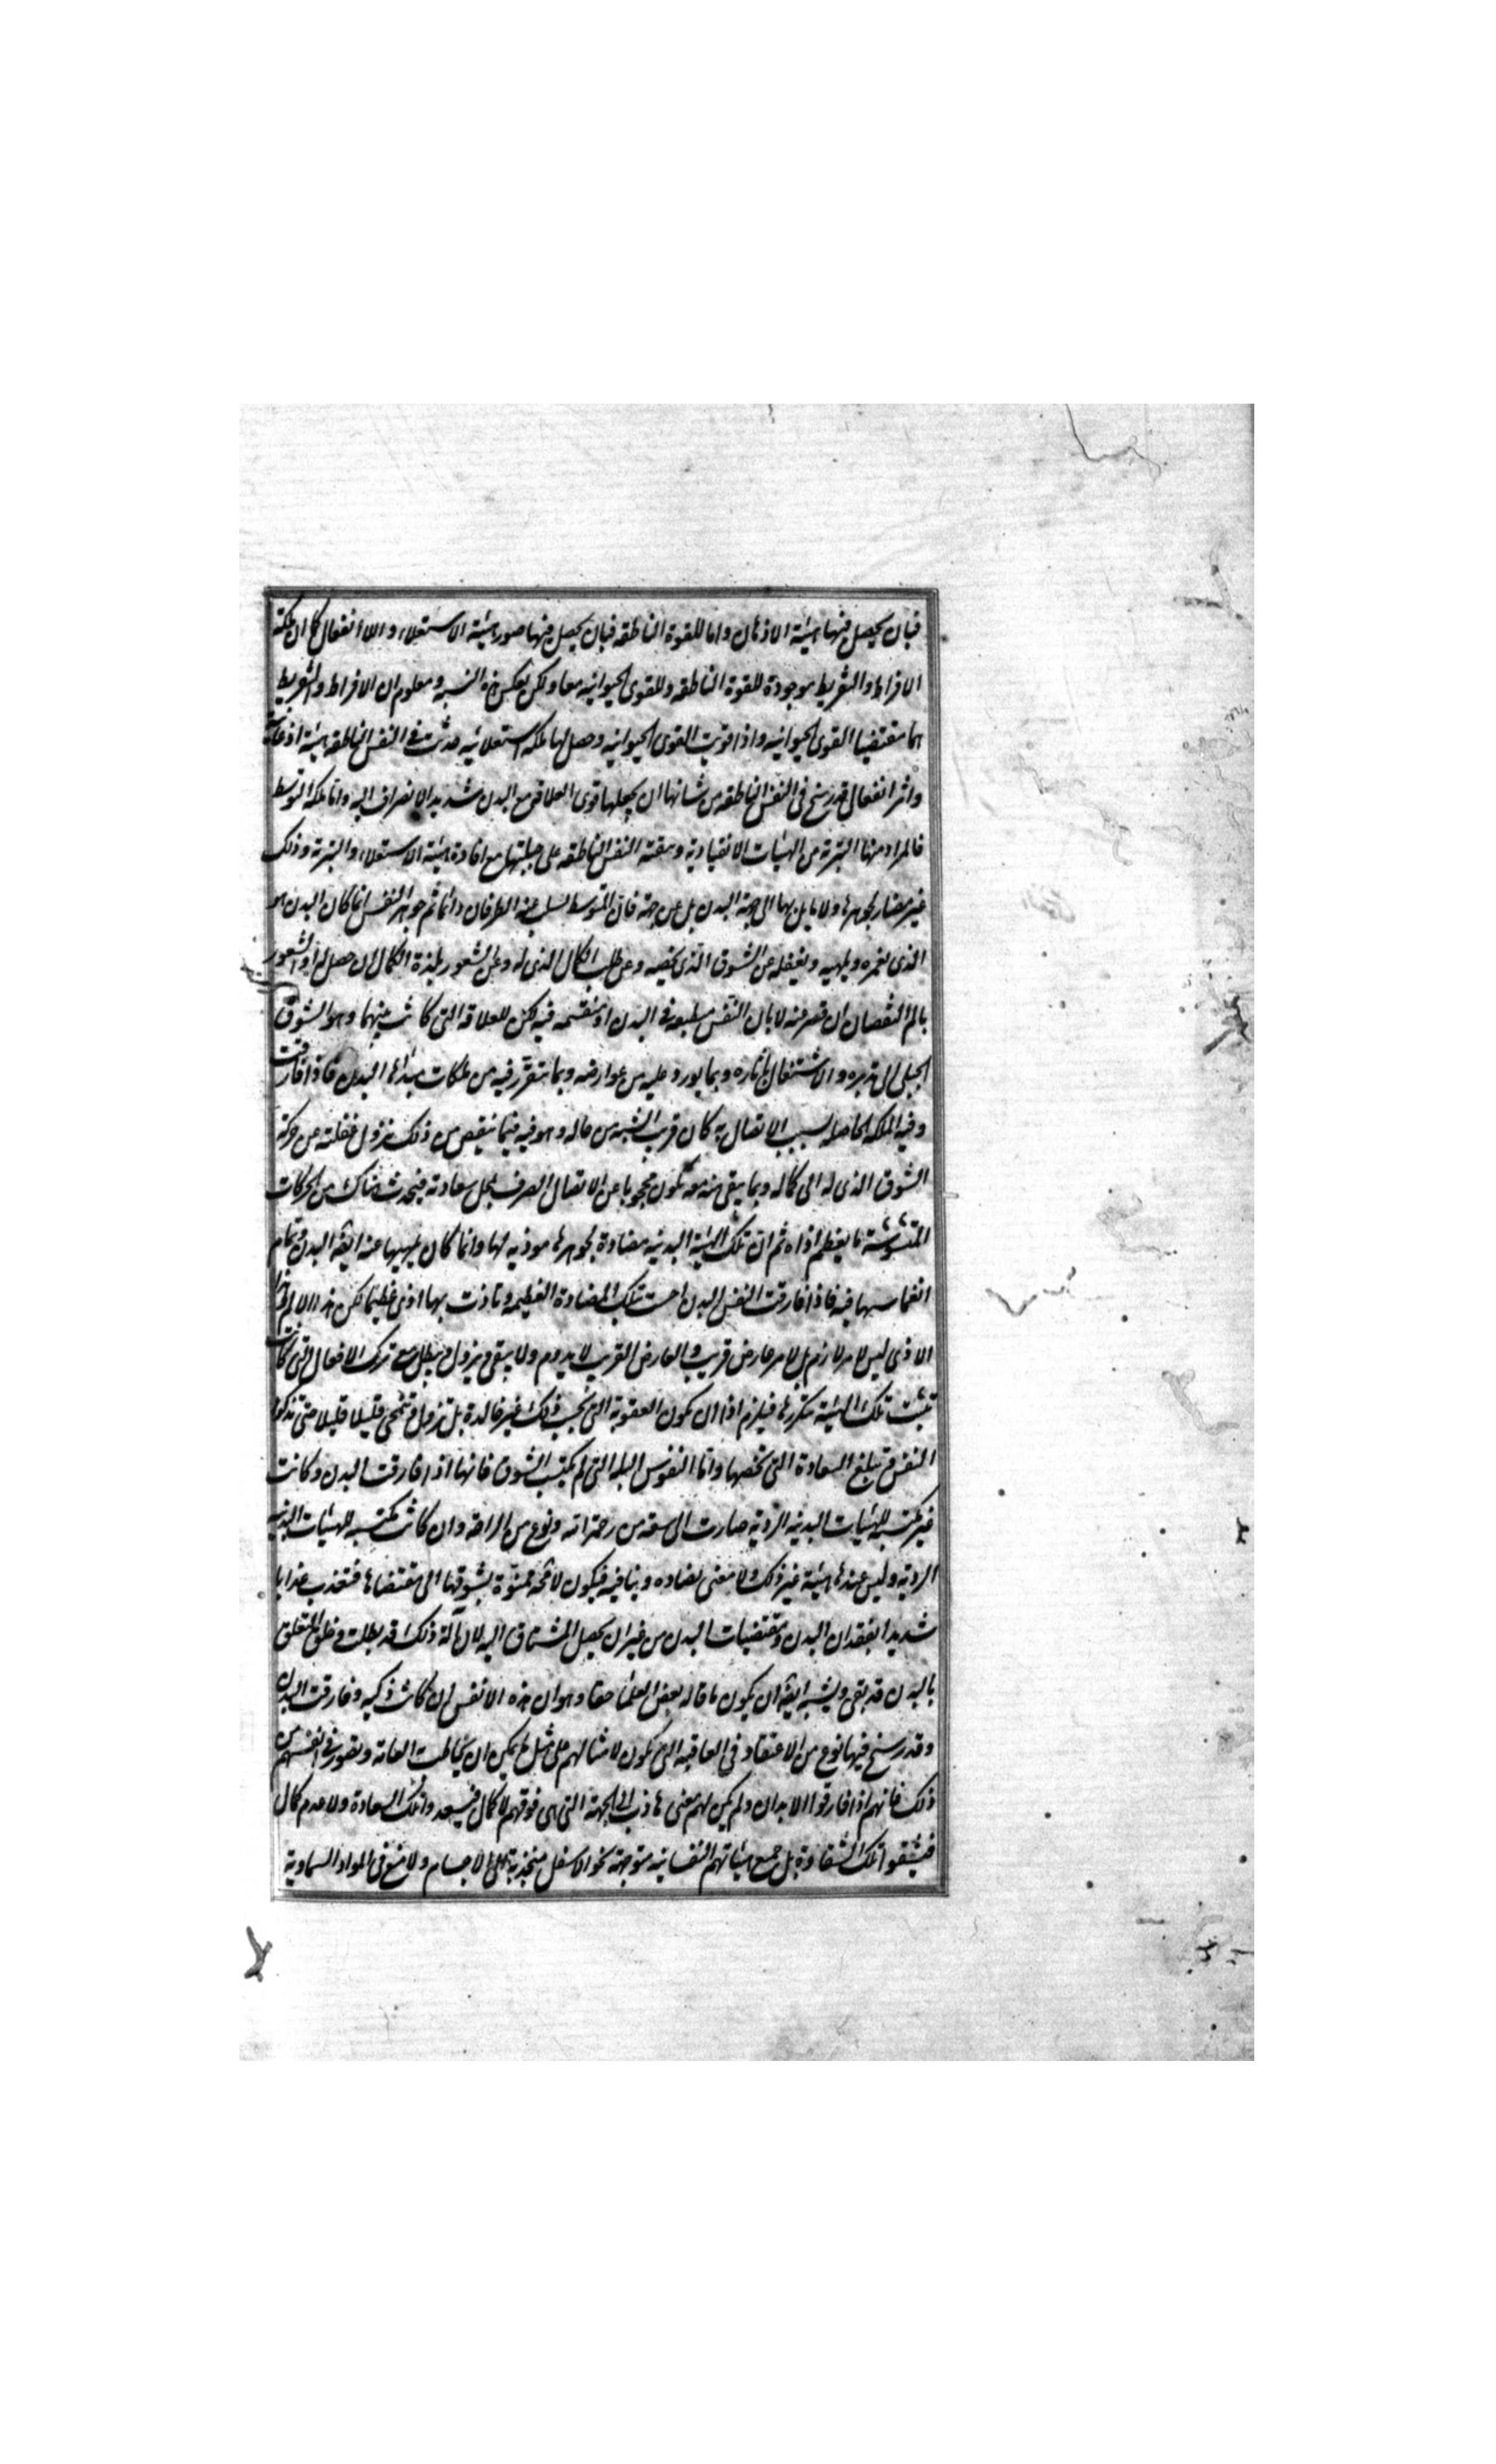 فبان يحصل فيها هيئة الاذعان واما للقوة الناطقه فبان يحصل فيها صورهيئة الاستعلاء واللاانفعال كما ان ملكة
الافراط والتفريط موجودة للقوة الناطقه وللقوى الحيوانيه معا ولكن بعكس هذه النسبه ومعلوم ان الافراط والتفريط
هما مقتضيا القوى الحيوانيه واذا قويت القوى الحيوانيه وحصل لها ملكه استعلائيه حدثت فى النفس الناطقه هيئة اذعانية
واثر انفعالى قد رسخ فى النفس الناطقه من شانها ان يجعلها قوى العلاقه مع البدن شديد الانصراف اليه واما ملكه التوسط
فالمراد منها التبرئة من الهيئات الانقيادية وتبقية النفس الناطقه على جبلتها مع افادة هيئة الاستعلاء والتبرئة وذلك
غير مضاد لجوهرها ولا مايل بها الى جهة البدن بل عن جهته فان المتوسط يسلب عنه الطرفان دائما ثم جوهر النفس انما كان البدن هو
الذى يغمره ويلهيه ويغفله عن الشوق الذى يخصه وعن طلب الكمال الذى له وعن الشعور بلذة الكمال ان حصل له او الشعور
بالم النقصان ان قصر عنه لا بان النفس منطبعه فى البدن او منغمسه فيه لكن للعلاقه التى كانت بينهما وهو الشوق
الجبلى الى تدبيره والاشتغال باثاره وبما يورد عليه من عوارضه وبما يتقرر فيه من ملكات مبدأها البدن فاذا فارقت
وفيه الملكه الحاصله بسبب الاتصال به كان قريب الشبه من حاله وهو فيه فبما ينقص من ذلك تزول غفلته عن حركة
الشوق الذى له الى كماله وبما يبقى منه معه تكون محجوبا عن الاتصال الصرف بمحل سعادته فيحدث هناك من الحركات
المتشوشة ما يعظم اذاه ثم ان تلك الهيئة البدنيه مضادة لجوهرها موذيه لها وانما كان يلهيها عنه ايضا البدن وتمام
انغماسها فيه فاذا فارقت النفس البدن احست بتلك المضادة العظيمه وتاذت بها اذى عظيما لكن هذا الالم وهذا
الاذى ليس لامر لازم بل لامر عارض قريب والعارض القريب لا يدوم ولا يبقى ويزول ويبطل مع ترك الافعال التى كانت
تثبت تلك الهيئة بتكررها فيلزم اذا ان تكون العقوبة التى بحسب ذلك غير خالدة بل تزول وتنمحى قليلا قليلا حتى تزكوا
النفس وتبلغ السعادة التى تخصها واما النفوس البله التى لم تكتسب الشوق فانها اذا فارقت البدن وكانت
غير مكتسبه للهيئات البدنيه الردية صارت الى سعة من رحمة الله ونوع من الراحة وان كانت مكتسبه للهيئات البدنيه
الردية وليس عندها هيئة غير ذلك ولا معنى يضاده وينافيه فيكون لا محه ممنوة بشوقها الى مقتضاها فتعذب عذابا
شديدا بفقدان البدن ومقتضيات البدن من غير ان يحصل المشتاق اليه لان آلة ذلك قد بطلت وخلق التعلق
بالبدن قد بقى ويشبه ايضا ان يكون ما قاله بعض العلما حقا وهو ان هذه الانفس ان كانت زكيه وفارقت البدن
وقد رسخ فيها نوع من الاعتقاد فى العاقبه التى تكون لامثالهم على مثل ما يمكن ان يخاطب به العامه وتصور فى انفسهم من
ذلك فانهم اذا فارقوا الابدان ولم يكن لهم معنى جاذب الى الجهة التى هى فوقهم لا كمال فيسعدوا تلك السعادة ولا عدم كمال
فيشقوا تلك الشقاوة بل جميع هيئاتهم النفسانيه متوجهة نحو الاسفل منجذبة الى الاجسام ولا منع فى المواد السماوية